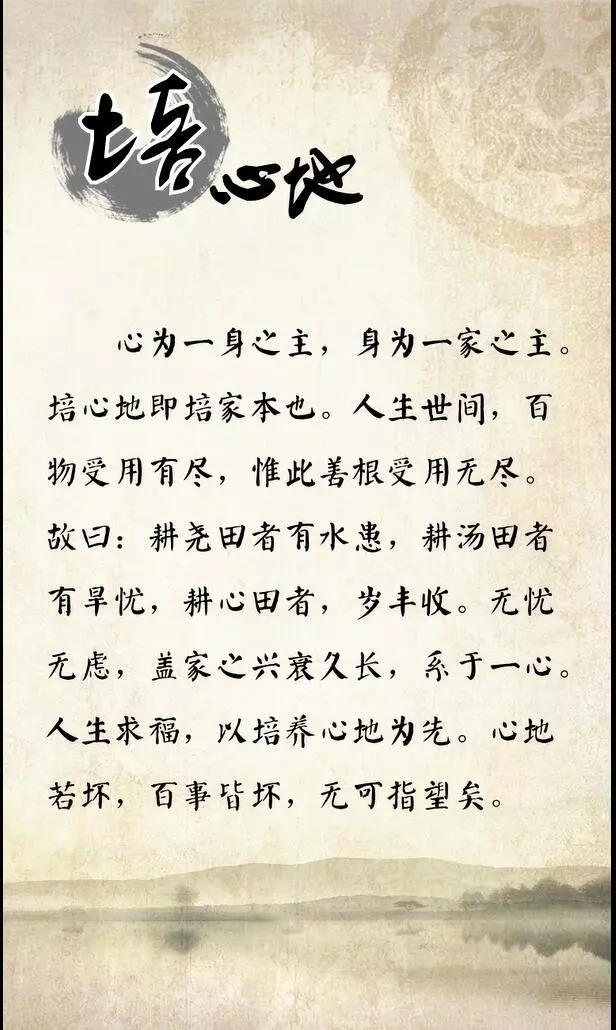 培心地
心为一身之主，身为一家之主。
培心地即培家本也。人生世间，百
物受用有尽，惟此善根受用无尽。
故曰：耕尧田者有水患，耕汤田者
有旱忧，耕心田者，岁丰收。无忧
无虑，盖家之兴衰久长，系于一心。
人生求福，以培养心地为先。心地
若坏，百事皆坏，无可指望矣。